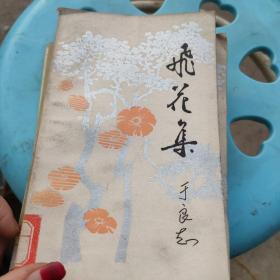 飛花集
于良志